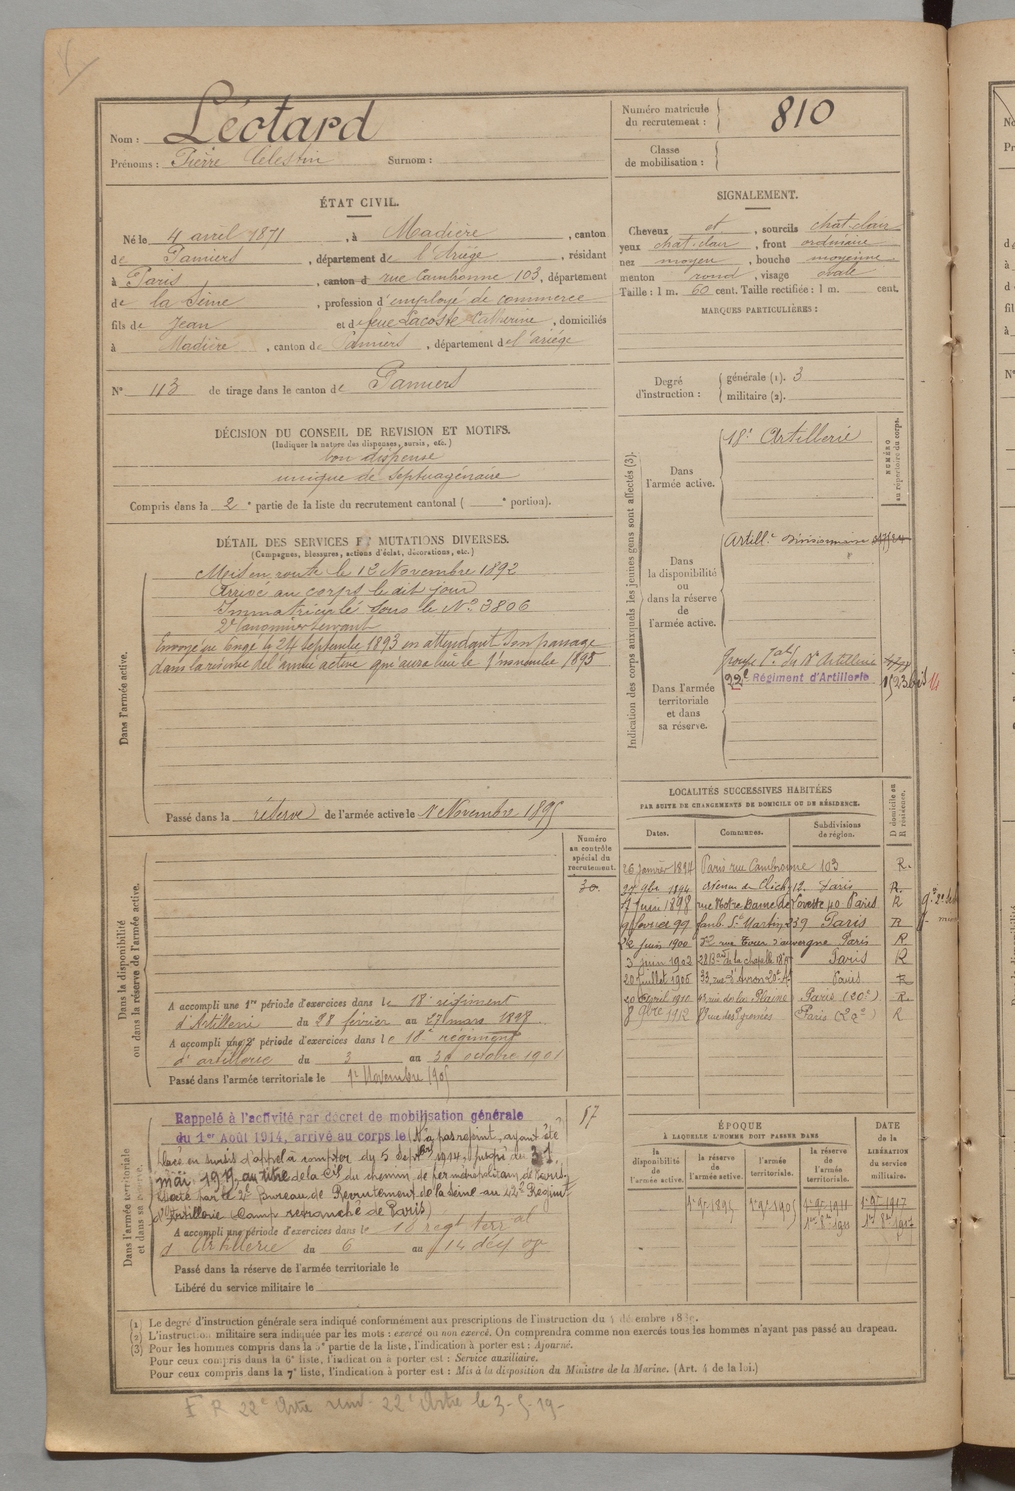 Nom : Léotard
Prénoms : Pierre Célestin Surnom :
Numéro matricule du recrutement : 810
Classe de mobilisation :
ÉTAT CIVIL.
Né le 4 avril 1871, à Madière, canton
de Pamiers, département de l'Ariége, résidant
à Paris, canton d rue Cambronne 103, département
de la Seine, profession d'employé de commerce
fils de Jean et de feue Lacoste Catherine, domiciliés
à Madière, canton de Pamiers, département de l'ariége
N° 43 de tirage dans le canton de Pamiers
SIGNALEMENT.
Cheveux et, sourcils chat.clair
yeux chat.clair, front ordinaire
nez moyen, bouche moyenne
menton rond, visage ovale
Taille : 1 m. 60 cent. Taille rectifiée : 1 m. cent.
MARQUES PARTICULIÈRES :
Degré d'instruction : générale (1). 3
militaire (2).
DÉCISION DU CONSEIL DE REVISION ET MOTIFS.
(Indiquer la nature des dispenses, sursis, etc.)
bon dispense
unique de Septuagénaire
Compris dans la 2e partie de la liste du recrutement cantonal ( e portion).
DÉTAIL DES SERVICES ET MUTATIONS DIVERSES.
(Campagnes, blessures, actions d'éclat, décorations, etc.)
Dans l'armée active.
Mis en route le 12 Novembre 1892
Arrivé au corps le dit jour
Immatriculé sous le N° 3806
2e Canonnier servant
Envoyé en Congé le 24 Septembre 1893 en attendant son passage
dans la réserve de l'armée active qui aura lieu le 1 novembre 1895
Passé dans la réserve de l'armée active le 1er Novembre 1895
Indication des corps auxquels les jeunes gens sont affectés (3).
NUMÉRO au répertoire du corps.
Dans l'armée active.
18e Artillerie
Dans la disponibilité ou dans la réserve de l'armée active.
Artill.e Divisionnaire
Dans l'armée territoriale et dans sa réserve.
Groupe Tal du 18e Artillerie
22e Régiment d'Artillerie
LOCALITÉS SUCCESSIVES HABITÉES
PAR SUITE DE CHANGEMENTS DE DOMICILE OU DE RÉSIDENCE.
Dates. Communes. Subdivisions de région. D domicile ou R résidence.
26 janvier 1894 Paris rue Cambronne 103 R.
27 9bre 1894 avenue de Clichy 12. Paris R.
7 Juin 1898 rue Notre Dame de Lorette 40 Paris R
9 fevrier 99 faub St Martin 239 Paris R
22 juin 1900 52 rue Tour d'auvergne Paris R
3 juin 1902 Paris R
20 juillet 1906 33, rue d'Avron 20e Ar Paris R
20 Avril 1910 rue de la Plaine Paris (20e) R.
8 9bre 1912 Paris R
Dans la disponibilité ou dans la réserve de l'armée active.
Numéro au contrôle spécial du recrutement.
30
A accompli une 1re période d'exercices dans le 18e régiment
d'Artillerie du 28 février au 27 mars 1898
A accompli une 2e période d'exercices dans le 18e régiment
d'artillerie du 3 au 30 octobre 1901
Passé dans l'armée territoriale le 1er Novembre 1905
Dans l'armée territoriale et dans sa réserve.
17
Rappelé à l'activité par décret de mobilisation générale
du 1er Août 1914, arrivé au corps le (N'a pas rejoint, ayant été
placé en sursis d'appel à compter du 5 Septbre 1914, jusqu'au 31
mai 1917, au titre de la Cie du chemin de fer métropolitain de Paris)
par le 2e bureau de Recrutement de la Seine au Régiment
d'Artillerie (Camp retranché de Paris)
A accompli une période d'exercices dans le 18 regt terral
d'Artillerie du 6 au 14 décb 09
Passé dans la réserve de l'armée territoriale le
Libéré du service militaire le
ÉPOQUE
À LAQUELLE L'HOMME DOIT PASSER DANS
la disponibilité de l'armée active. la réserve de l'armée active. l'armée territoriale. la réserve de l'armée territoriale.
DATE de la LIBÉRATION du service militaire.
1er 9bre 1895 1er 9bre 1905 1er 9bre 1911 1er 9bre 1917
1er 8bre 1911 1er 8bre 1917
(1) Le degré d'instruction générale sera indiqué conformément aux prescriptions de l'instruction du 4 décembre 1889.
(2) L'instruction militaire sera indiquée par les mots : exercé ou non exercé. On comprendra comme non exercés tous les hommes n'ayant pas passé au drapeau.
(3) Pour les hommes compris dans la 5e partie de la liste, l'indication à porter est : Ajourné.
Pour ceux compris dans la 6e liste, l'indication à porter est : Service auxiliaire.
Pour ceux compris dans la 7e liste, l'indication à porter est : Mis à la disposition du Ministre de la Marine. (Art. 4 de la loi.)
F R 22e Artie 22e Artie le 3-5-19-